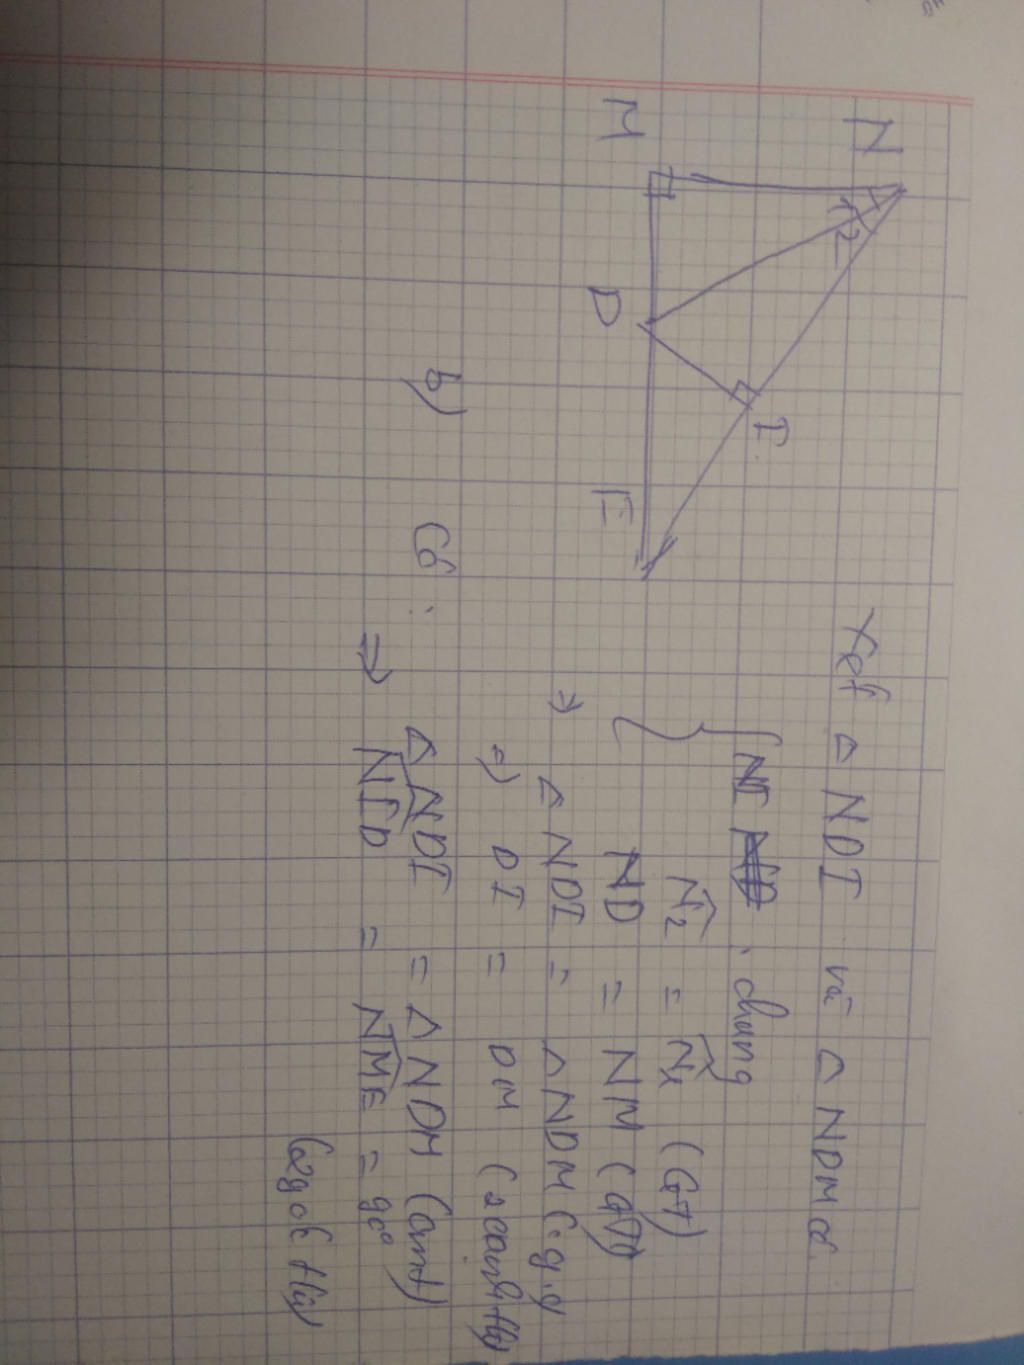 N
1 2
M
D
I
E
Xét △ NDI và △ NDM có
ND chung
N̂2 = N̂1 (GT)
ND = NM (GT)
⇒ △ NDI = △ NDM (c.g.c)
⇒ DI = DM (2 cạnh t/ứ)
b) Có: △ NDI = △ NDM (cmt)
⇒ NID = NME = 90°
(2 góc t/ứ)